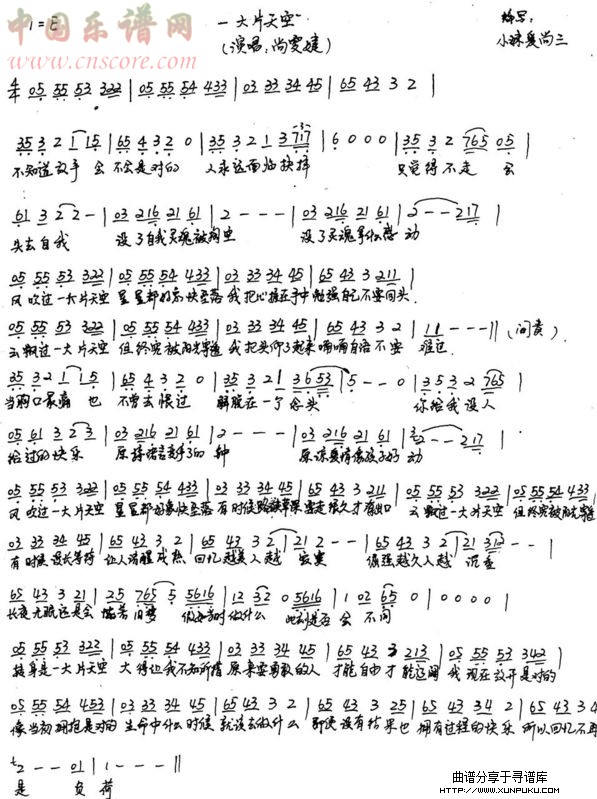 中国乐谱网
www.cnscore.com
1=E
一大片天空
(演唱:尚雯婕)
编写:
小球爱尚三
4/4 05 55 53 322 | 05 55 54 433 | 03 33 34 45 | 65 43 3 2 |
35 3 2 1 15 | 65 4 32 0 | 35 3 2 1 3 717 | 6 0 0 0 | 35 3 2 765 05 |
不知道放手 会 不会是对的 人永远面临抉择 只觉得不走 会
61 3 2 2 - | 03 216 21 61 | 2 - - - | 03 216 21 61 | 2 - - 217 |
失去自我 没了自我灵魂被掏空 没了灵魂拿什么感 动
05 55 53 322 | 05 55 54 433 | 03 33 34 45 | 65 43 3 211 |
风吹过一大片天空 星星都好想快坠落 我把心握在手中 勉强自己不要回头
05 55 53 322 | 05 55 54 433 | 03 33 34 45 | 65 43 3 2 | 11 - - - || (间奏)
云飘过一大片天空 但终究被阳光穿透 我把头仰了起来 喃喃自语不要 难过
35 3 2 1 15 | 65 4 3 2 0 | 35 3 21 3653 | 5 - - 0 | 353 2 765 |
当胸口最痛 也 不曾去恨过 解脱在一个念头 你给我没人
05 61 3 23 | 03 216 21 61 | 2 - - - | 03 216 21 61 | 2 - - 217 |
给过的快乐 动
05 55 53 322 | 05 55 54 433 | 03 33 34 45 | 65 43 3 211 | 05 55 53 322 | 05 55 54 433 |
风吹过一大片天空 星星都好想快坠落 有时候 云飘过一大片天空 但终究被阳光穿透
03 33 34 45 | 65 43 3 2 | 65 43 3 2 | 21 2 - - | 65 43 3 2 | 21 312 - - |
有时候漫长等待 让人清醒成熟 回忆越美人越 倔强越久人越 沉重
65 43 3 21 | 25 765 5 5616 | 12 32 0 5616 | 1 02 65 0 | 0 0 0 0 |
长夜无眠还是会 做什么 会 不同
05 55 53 322 | 05 55 54 433 | 03 33 34 45 | 65 43 3 213 | 05 55 53 342 |
转身是一大片天空 大得让我不知所措 原来要勇敢的人 才能自由才能辽阔 我现在放开是对的
05 55 54 453 | 03 33 34 45 | 65 43 3 2 | 65 43 3 25 | 65 43 34 2 | 65 43 3 4
像当初拥抱是对的 生命中什么时候 就该去做什么 即使没有结果也 拥有过程的快乐 所以回忆不再
2 - - 01 | 1 - - - ||
是 负 荷
曲谱分享于寻谱库
HTTP://WWW.XUNPUKU.COM